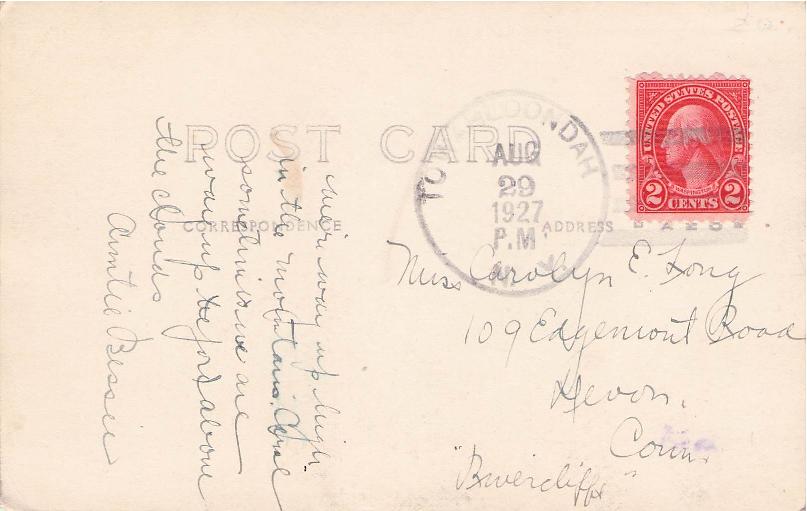 POST CARD
CORRESPONDENCE
ADDRESS
way up high
in the mountains, Carol
sometimes we are
way up above
the clouds
Auntie Bessie
AUG
29
1927
P.M
N. Y.
UNITED STATES POSTAGE
WASHINGTON
2 CENTS 2
Miss Carolyn E. Long
109 Edgemont Road
Devon,
Conn.
"Rivercliff"